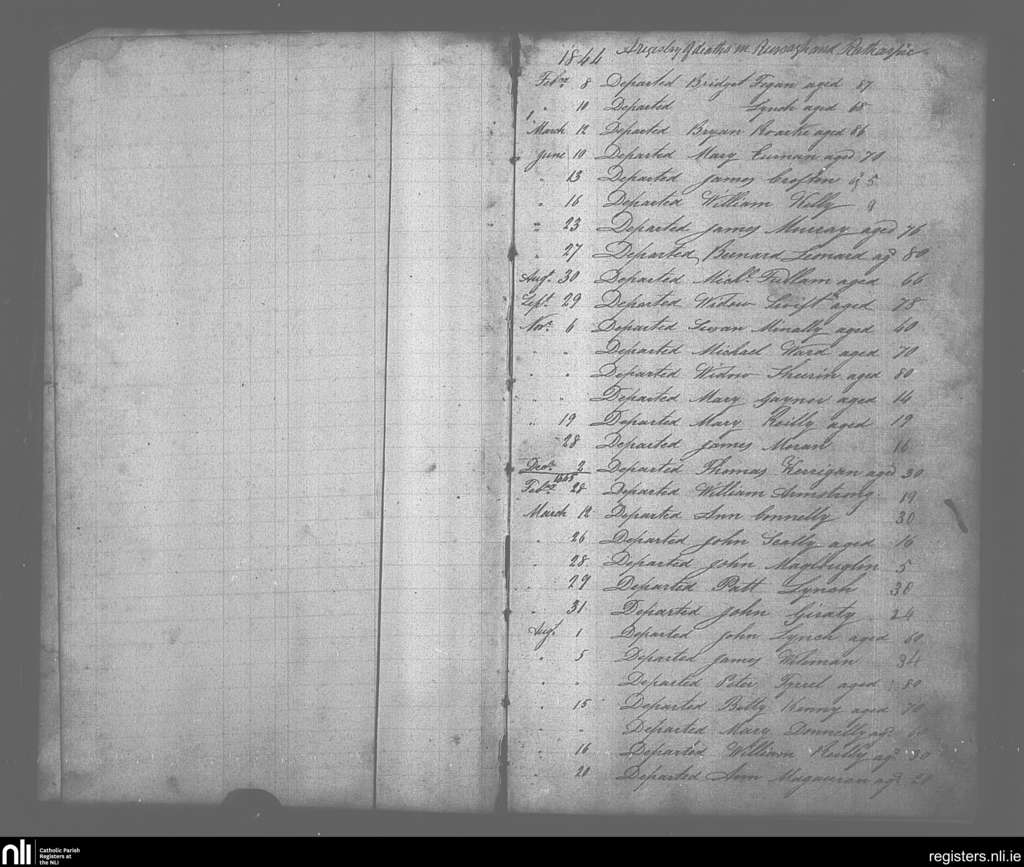 1844 A Registry of deaths in and
Feby. 8 Departed Bridget Fegan aged 87
" 10 Departed Lynch aged 68
March 12 Departed Bryan Roarke aged 86
June 10 Departed Mary Curnan aged 70
" 13 Departed James Crofton ag 5
" 16 Departed William Kelly 9
" 23 Departed James Murray aged 76
" 27 Departed Bernard Leonard agd 80
Augt. 30 Departed Michl. Fullam aged 66
Sept. 29 Departed Widow Swift aged 78
Novr. 6 Departed Susan Minally aged 40
" " Departed Michael Ward aged 70
" " Departed Widow Sheerin aged 80
" " Departed Mary Gaynor aged 14
" 19 Departed Mary Reilly aged 19
" 28 Departed James Moran 16
Decr. 2 Departed Thomas Kerrigan aged 30
1845
Feby. 28 Departed William Armstrong 19
March 12 Departed Ann Connelly 30
" 26 Departed John Scally aged 16
" 28 Departed John Magloughlin 5
" 29 Departed Patt Lynch 30
" 31 Departed John Giraty 24
Augt. 1 Departed John Lynch aged 60
" 5 Departed James 34
" " Departed Peter Tyrrel aged 80
" 15 Departed Betty Kenny aged 70
Departed Mary Donnelly agd
" 16 Departed William Reilly agd 30
" 20 Departed Ann Magauran agd 20
nli
Catholic Parish
Registers at
the NLI
registers.nli.ie